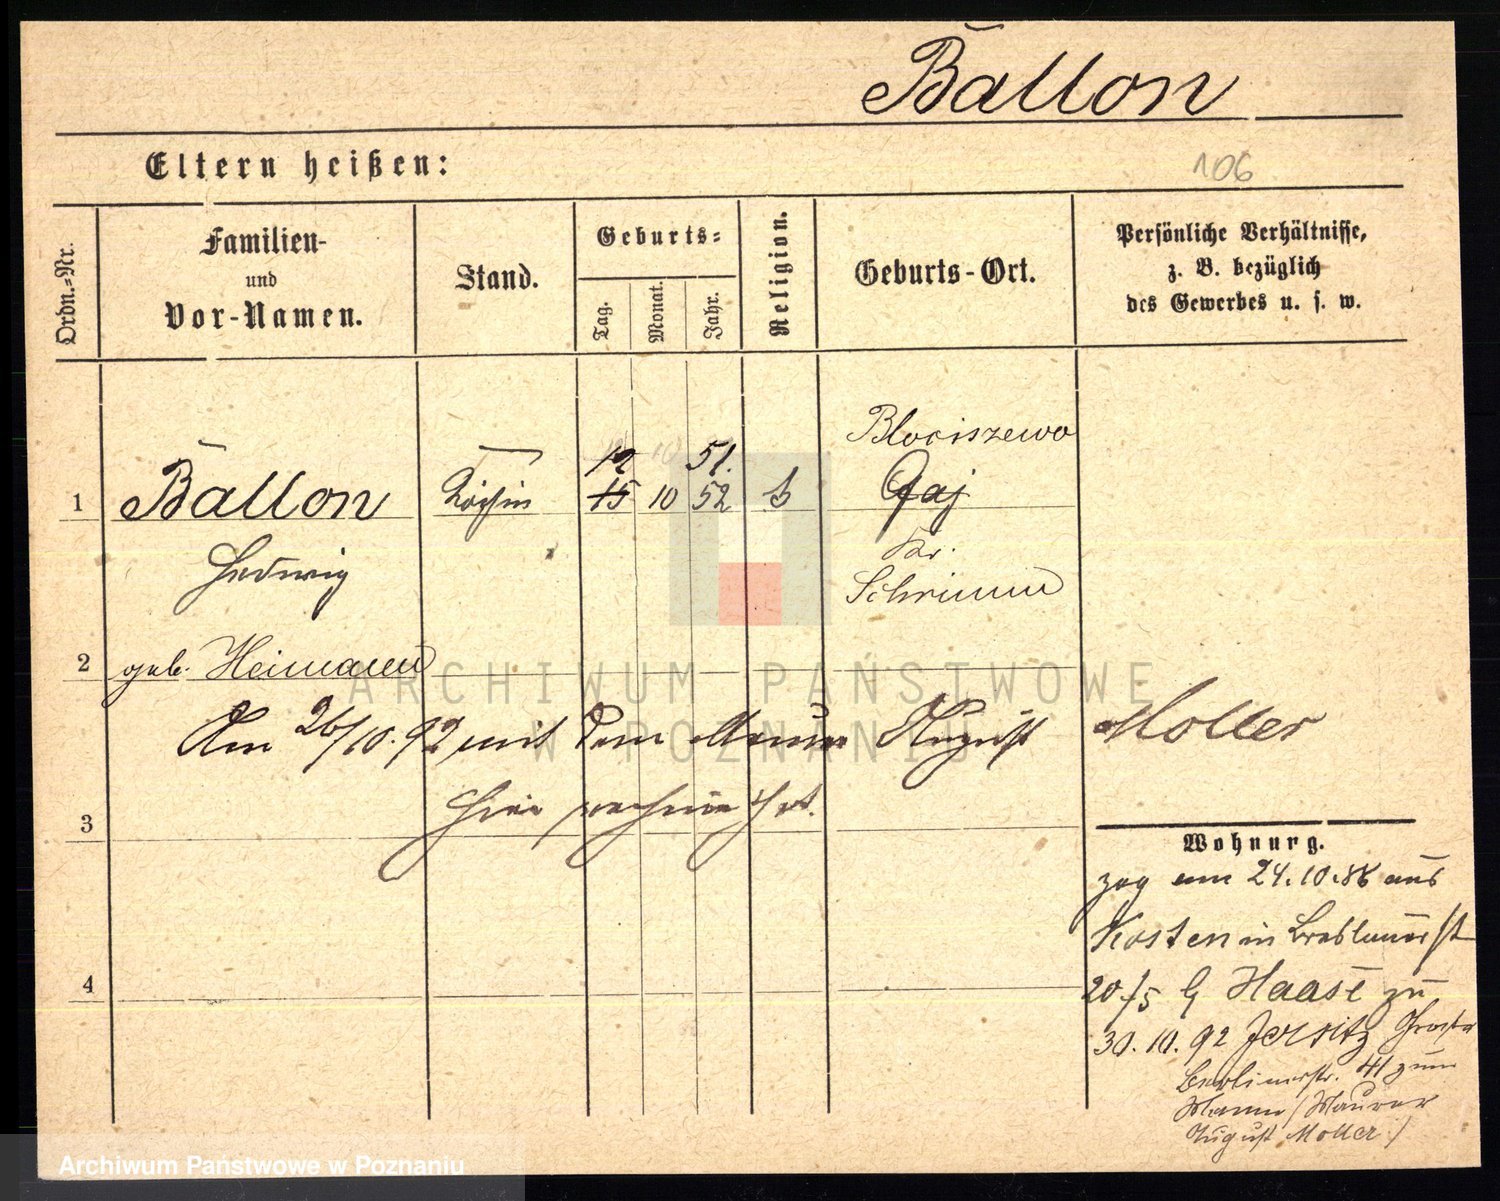 Ballon
Eltern heißen:
106
Ordn.-Nr.
Familien-
und
Vor-Namen.
Stand.
Geburts-
Tag.
Monat.
Jahr.
Religion.
Geburts-Ort.
Persönliche Verhältnisse,
z. B. bezüglich
des Gewerbes u. s. w.
Blociszewo
12 10 51.
1 Ballon Köchin 15 10 52 Gaj
Hedwig
Kr.
Schrimm
2 geb. Heimann
Am 26/10.92 mit dem Maurer August Moller
hier
3
Wohnung.
zog am 24.10.86 aus
Kosten in Breslauerst
20 b/ Haase zu
4
30.10.92 Jersitz Große
Berlinerstr. 41 zum
Manne (Maurer
August Moller)
ARCHIWUM PAŃSTWOWE
W POZNANIU
Archiwum Państwowe w Poznaniu